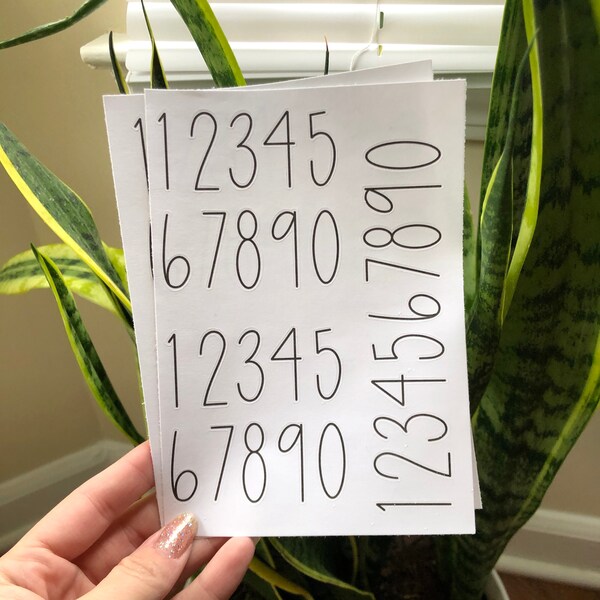 12345
67890
12345
67890
1234567890